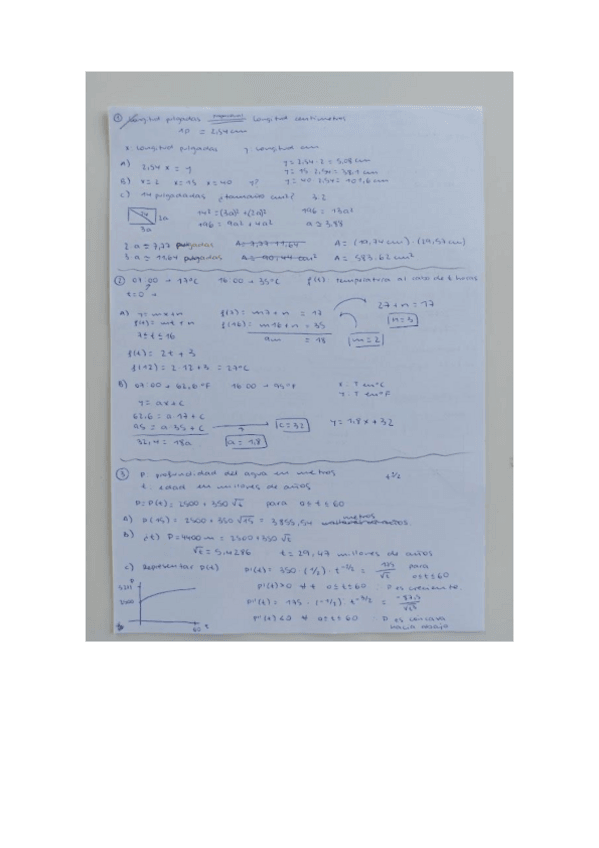 ① Longitud pulgadas Longitud centímetros
10 = 2,54cm
x longitud pulgadas y longitud cm
A) 2,54 x = y y = 2,54 · 2 = 5,08 cm
B) x=2 x=15 x=40 y? y = 15 · 2,54 = 38,1 cm
y = 40 · 2,54 = 101,6 cm
C) 14 pulgadas ¿tamaño cm²? 3:2
14 2a 3a 14² = (3a)² + (2a)² 196 = 13a²
196 = 9a² + 4a² a ≅ 3,88
2a ≅ 7,77 pulgadas A = 7,77 · 11,64 A = (19,74 cm) · (29,57cm)
3a ≅ 11,64 pulgadas A = 90,44 A = 583,62 cm²
② 07:00 → 17ºC 16:00 → 35ºC f(t): temperatura al cabo de t horas
t=0
A) y = mx+n f(7) = m7+n = 17 27+n = 17
f(t) = mt+n f(16) = m16+n = 35 n=3
7≤t≤16 9m = 18 m=2
f(t) = 2t + 3
f(12) = 2·12+3 = 27ºC
B) 07:00 → 62,6ºF 16:00 → 95ºF x: T en ºC
y: T en ºF
y = ax+c
62,6 = a·17+c
95 = a·35+c c=32 y = 1,8x+32
32,4 = 18a a=1,8
③ P: profundidad del agua en metros t^1/2
t: edad en millones de años
P = P(t) = 2500 + 350 √t para 0≤t≤60
A) P(15) = 2500 + 350 √15 = 3855,54 metros
B) ¿t? P=4400 m = 2500+350 √t
√t = 5,4286 t = 29,47 millones de años
C) Representar P(t) P'(t) = 350 · (1/2) · t^-1/2 = 175/√t para 0≤t≤60
P'(t)>0 ∀ t 0≤t≤60 P es creciente
P''(t) = 175 · (-1/2) · t^-3/2 = -87,5/√t³
P''(t)<0 ∀ 0≤t≤60 P es cóncava hacia abajo
P
2500
60 t